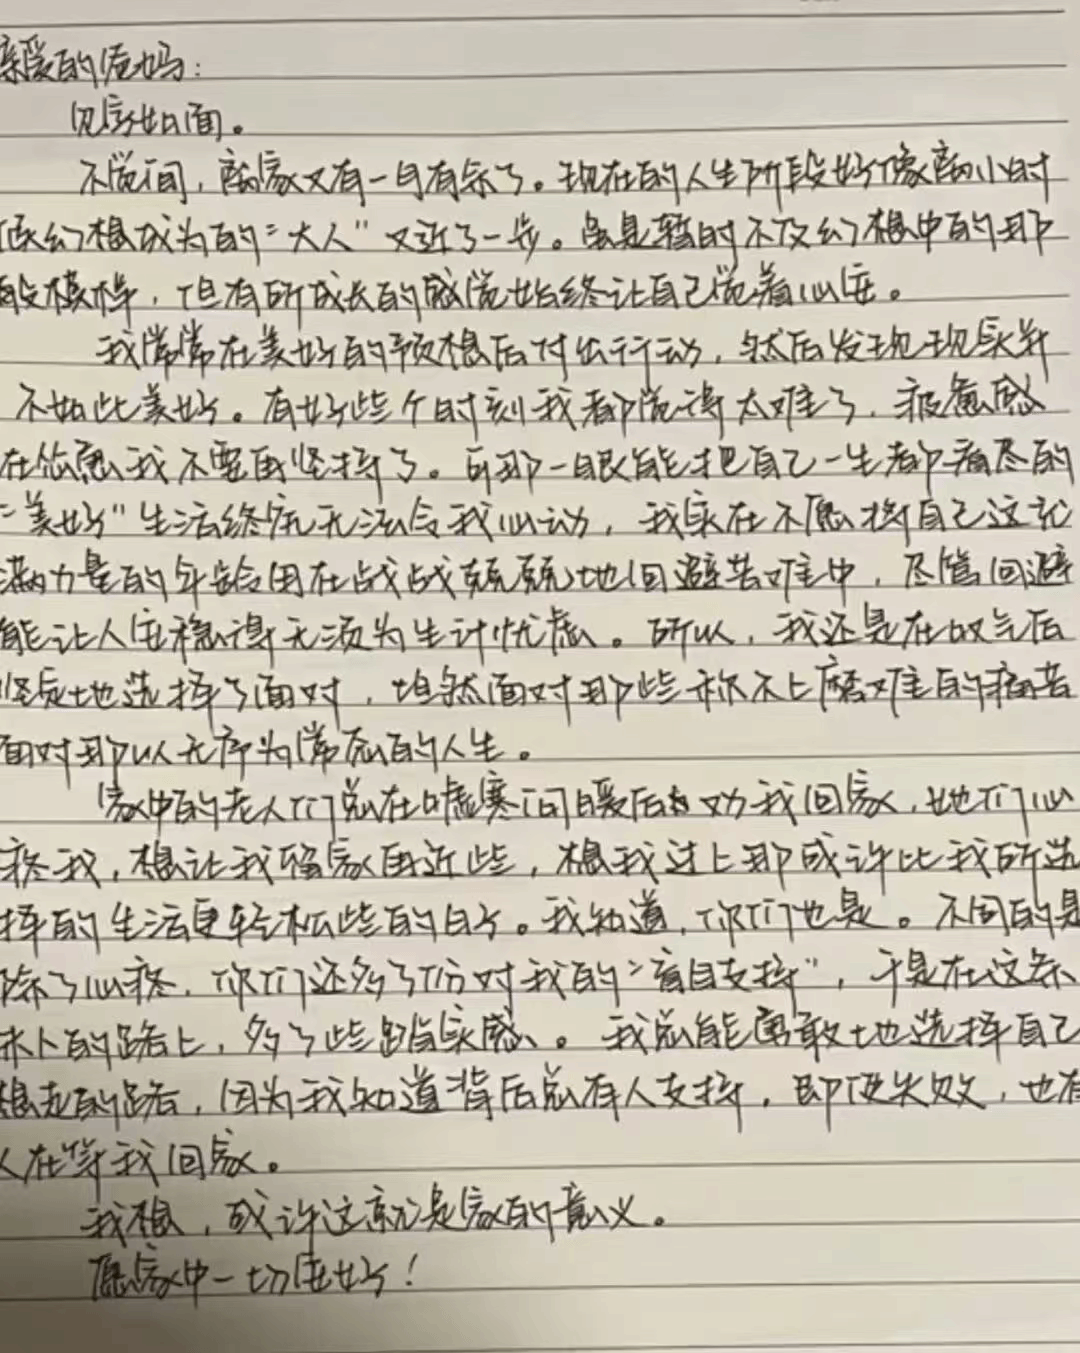 亲爱的爸妈：
见字如面。
不觉间，离家又有一月有余了。现在的人生阶段好像离小时
候幻想成为的“大人”又近了一步。虽是暂时不及幻想中的那
般模样，但有所成长的感觉始终让自己觉着心安。
我常常在美好的预想后付出行动，然后发现现实并
不如此美好。有好些个时刻我都觉得太难了，疲惫感
在怂恿我不要再坚持了。可那一眼能把自己一生都看尽的
“美好”生活终究无法令我心动，我实在不愿将自己这充
满力量的年龄用在战战兢兢地回避苦难中，尽管回避
能让人安稳得无须为生计忧虑。所以，我还是在叹气后
坚定地选择了面对，坦然面对那些称不上磨难的痛苦
面对那以无序为常态的人生。
家中的老人们总在嘘寒问暖后劝我回家，她们心
疼我，想让我离家再近些，想我过上那或许比我所选
择的生活更轻松些的日子。我知道，你们也是。不同的是
除了心疼，你们还多了份对我的“盲目支持”，于是在这条
未卜的路上，多了些踏实感。我总能勇敢地选择自己
想走的路，因为我知道背后总有人支持，即便失败，也有
人在等我回家。
我想，或许这就是家的意义。
愿家中一切安好！